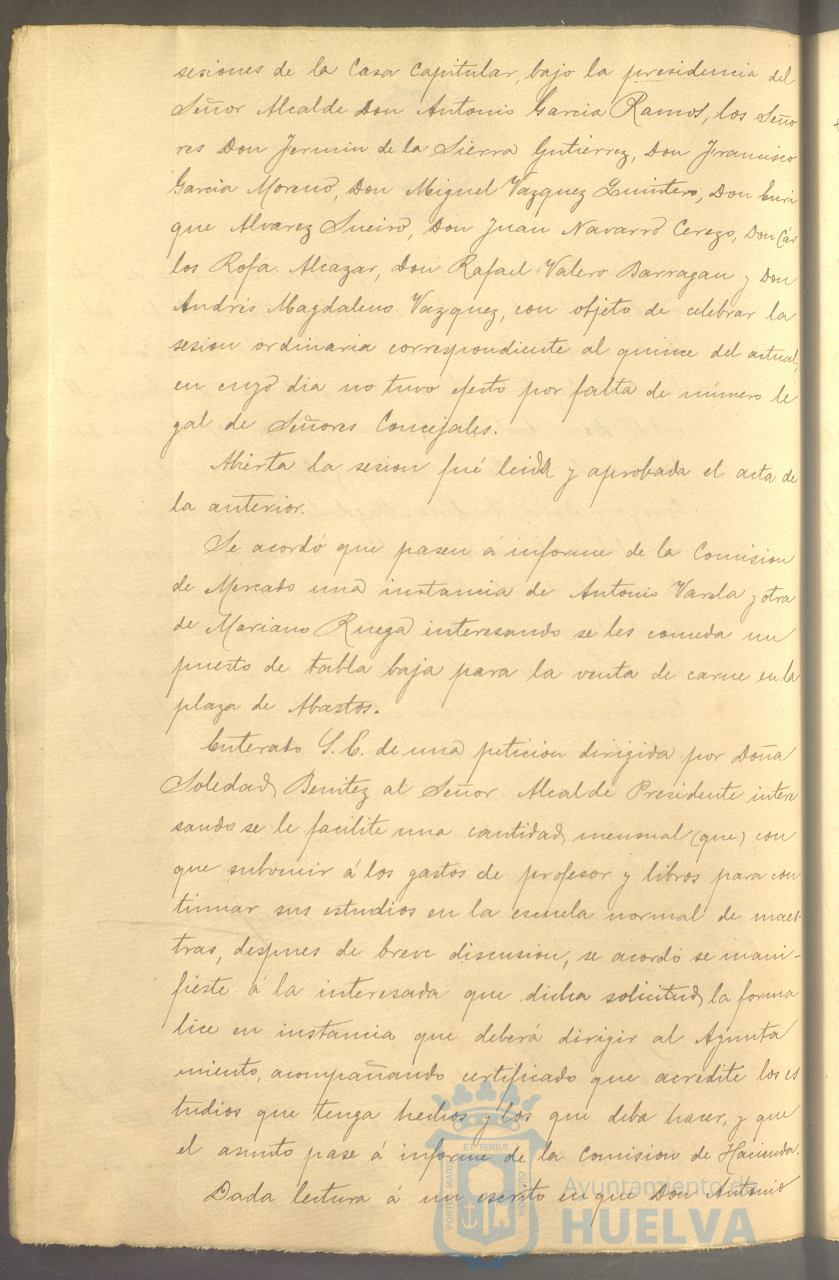 sesiones de la Casa Capitular, bajo la presidencia del
Señor Alcalde Don Antonio Garcia Ramos, los Seño
res Don Fermin de la Sierra Gutierrez, Don Francisco
Garcia Moreno, Don Miguel Vazquez Quintero, Don Enri
que Alvarez Sueiro, Don Juan Navarro Cerezo, Don Cár
los Rofa Alcazar, don Rafael Valero Barragan y Don
Andrés Magdaleno Vazquez, con objeto de celebrar la
sesion ordinaria correspondiente al quince del actual,
en cuyo dia no tuvo efecto por falta de número le
gal de Señores Concejales.
Abierta la sesion fué leida y aprobada el acta de
la anterior.
Se acordó que pasen á informe de la Comision
de Mercado una instancia de Antonio Varela y otra
de Mariano Ruega interesando se les conceda un
puesto de tabla baja para la venta de carne en la
plaza de Abastos.
Enterado S. E. de una peticion dirigida por Doña
Soledad Benitez al Señor Alcalde Presidente intere
sando se le facilite una cantidad mensual (que) con
que subvenir á los gastos de profesor y libros para con
tinuar sus estudios en la escuela normal de maes-
tras, despues de breve discusion, se acordó se mani-
fieste á la interesada que dicha solicitud la forma
lice en instancia que deberá dirigir al Ayunta
miento, acompañando certificado que acredite los es
tudios que tenga hechos y los que deba hacer, y que
el asunto pase á informe de la Comision de Hacienda.
Dada lectura á un escrito en que Don Antonio
PORTUS MARIS ET TERRÆ CUSTODIA
Ayuntamiento de
HUELVA